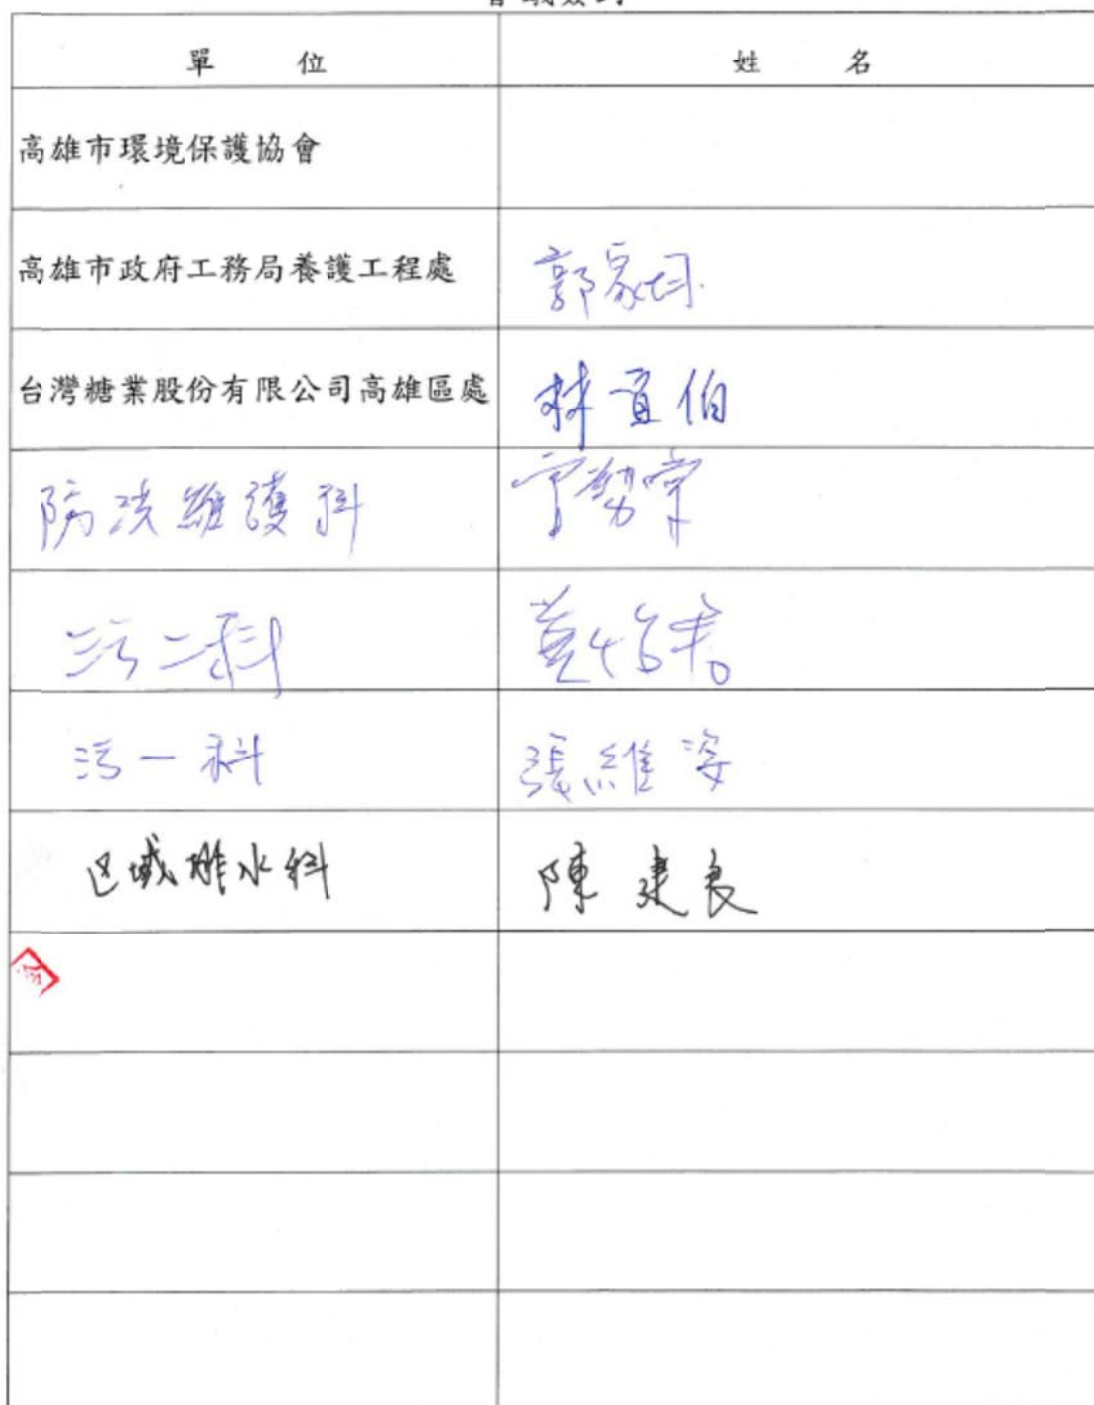 單 位 姓 名
高雄市環境保護協會
高雄市政府工務局養護工程處 郭家
台灣糖業股份有限公司高雄區處 林宜伯
防洪維護科
污二科 黃怡
污一科 張維姿
区域排水科 陳建良